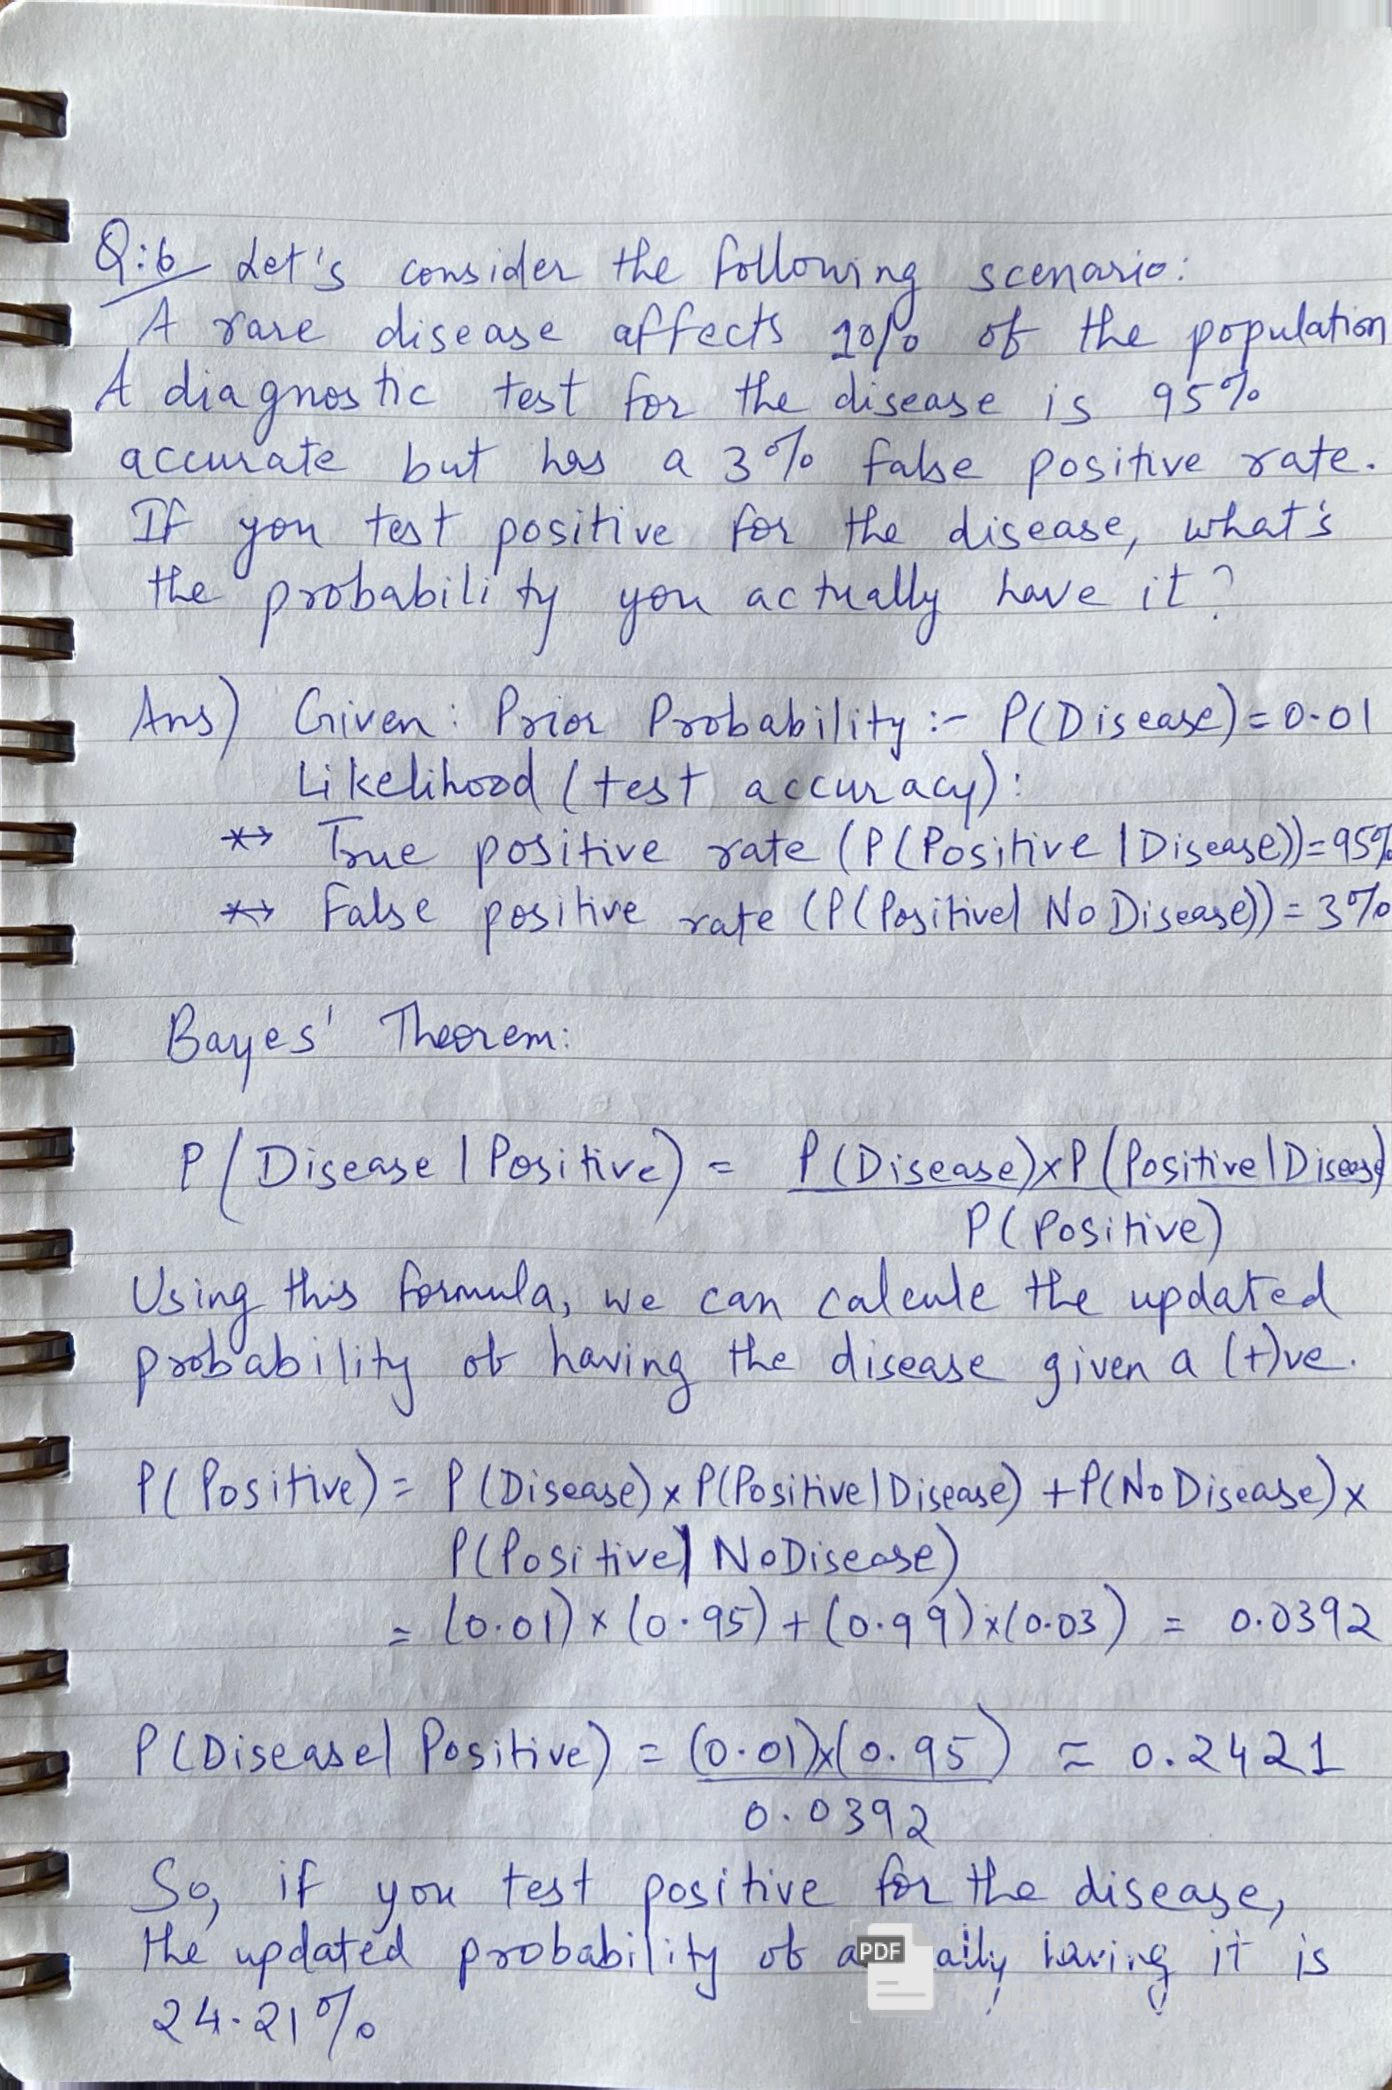 Q:6 Let's consider the following scenario:
A rare disease affects 10% of the population
A diagnostic test for the disease is 95%
accurate but has a 3% false positive rate.
If you test positive for the disease, what's
the probability you actually have it?
Ans) Given: Prior Probability :- P(Disease)=0.01
Likelihood (test accuracy):
*→ True positive rate (P(Positive | Disease))=95%
*→ False positive rate (P(Positive| No Disease))=3%
Bayes' Theorem:
P(Disease | Positive) = P(Disease)xP(Positive|Disease)
P(Positive)
Using this formula, we can calcule the updated
probability of having the disease given a (+)ve.
P(Positive) = P(Disease) x P(Positive|Disease) + P(No Disease) x
P(Positive| No Disease)
= (0.01) x (0.95) + (0.99) x (0.03) = 0.0392
P(Disease| Positive) = (0.01)x(0.95) ≈ 0.2421
0.0392
So, if you test positive for the disease,
the updated probability of having it is
24.21%
PDF